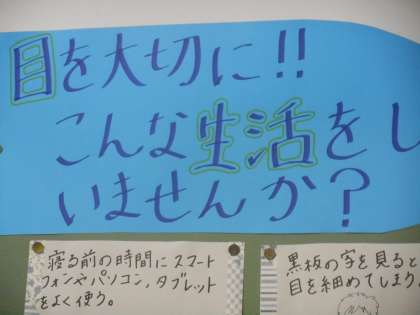 目を大切に!!
こんな生活をし
いませんか?
寝る前の時間にスマート
フォンやパソコン、タブレット
をよく使う。
黒板の字を見ると
目を細めてしまう。